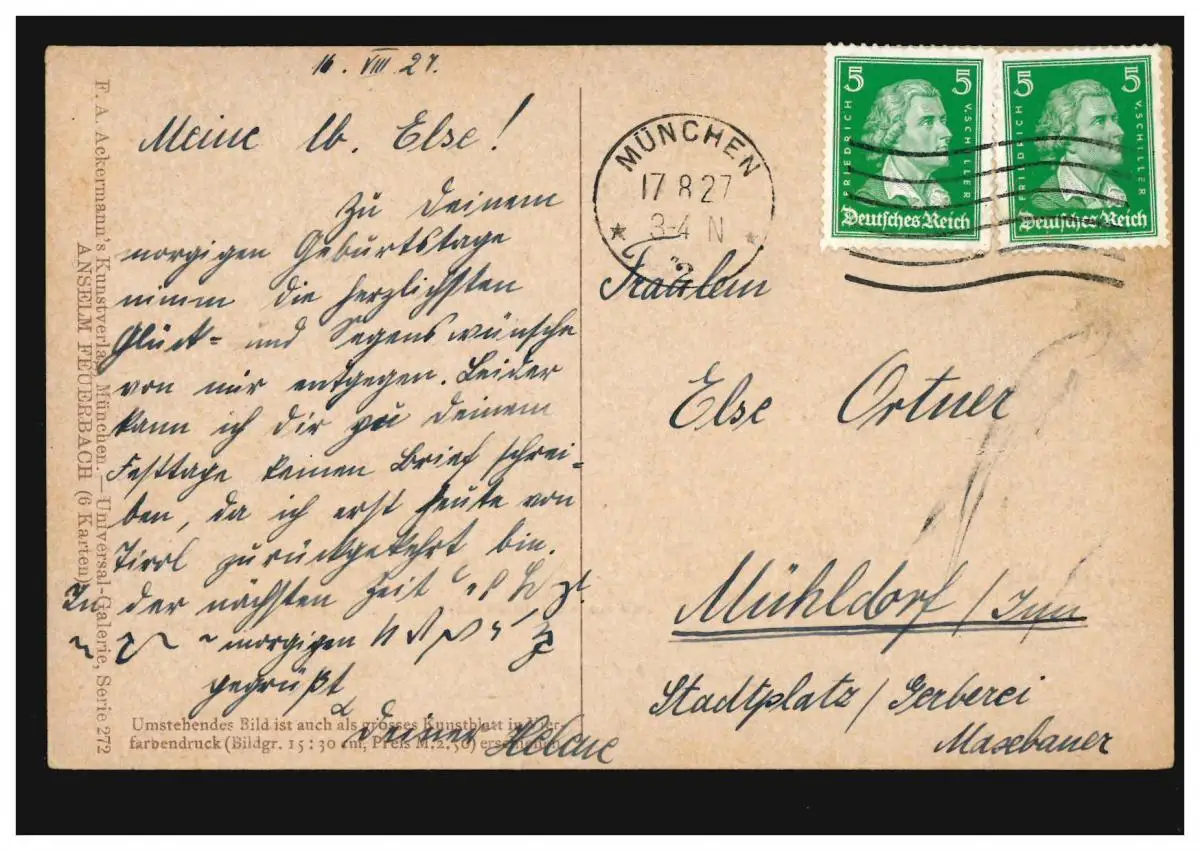 16. VIII 27.
Meine lb. Else!
Zu Deinem
morgigen Geburtstage
nimm die herzlichsten
Glück- und Segenswünsche
von mir entgegen. Leider
kann ich Dir zu Deinem
Festtage keinen Brief schrei-
ben, da ich erst heute von
Tirol zurückgekehrt bin.
In der nächsten Zeit
morgigen
gegrüßt
Deiner Helene
F. A. Ackermann's Kunstverlag, München. — Universal-Galerie, Serie 272
ANSELM FEUERBACH (6 Karten)
Umstehendes Bild ist auch als grosses Kunstblatt in Vier-
farbendruck (Bildgr. 15:30 cm, Preis M. 2,50) erschienen
MÜNCHEN
17 8 27
3-4 N
2
5 5
FRIEDRICH V. SCHILLER
Deutsches Reich
5 5
FRIEDRICH V. SCHILLER
Deutsches Reich
Fräulein
Else Ortner
Mühldorf / Inn
Stadtplatz / Gerberei